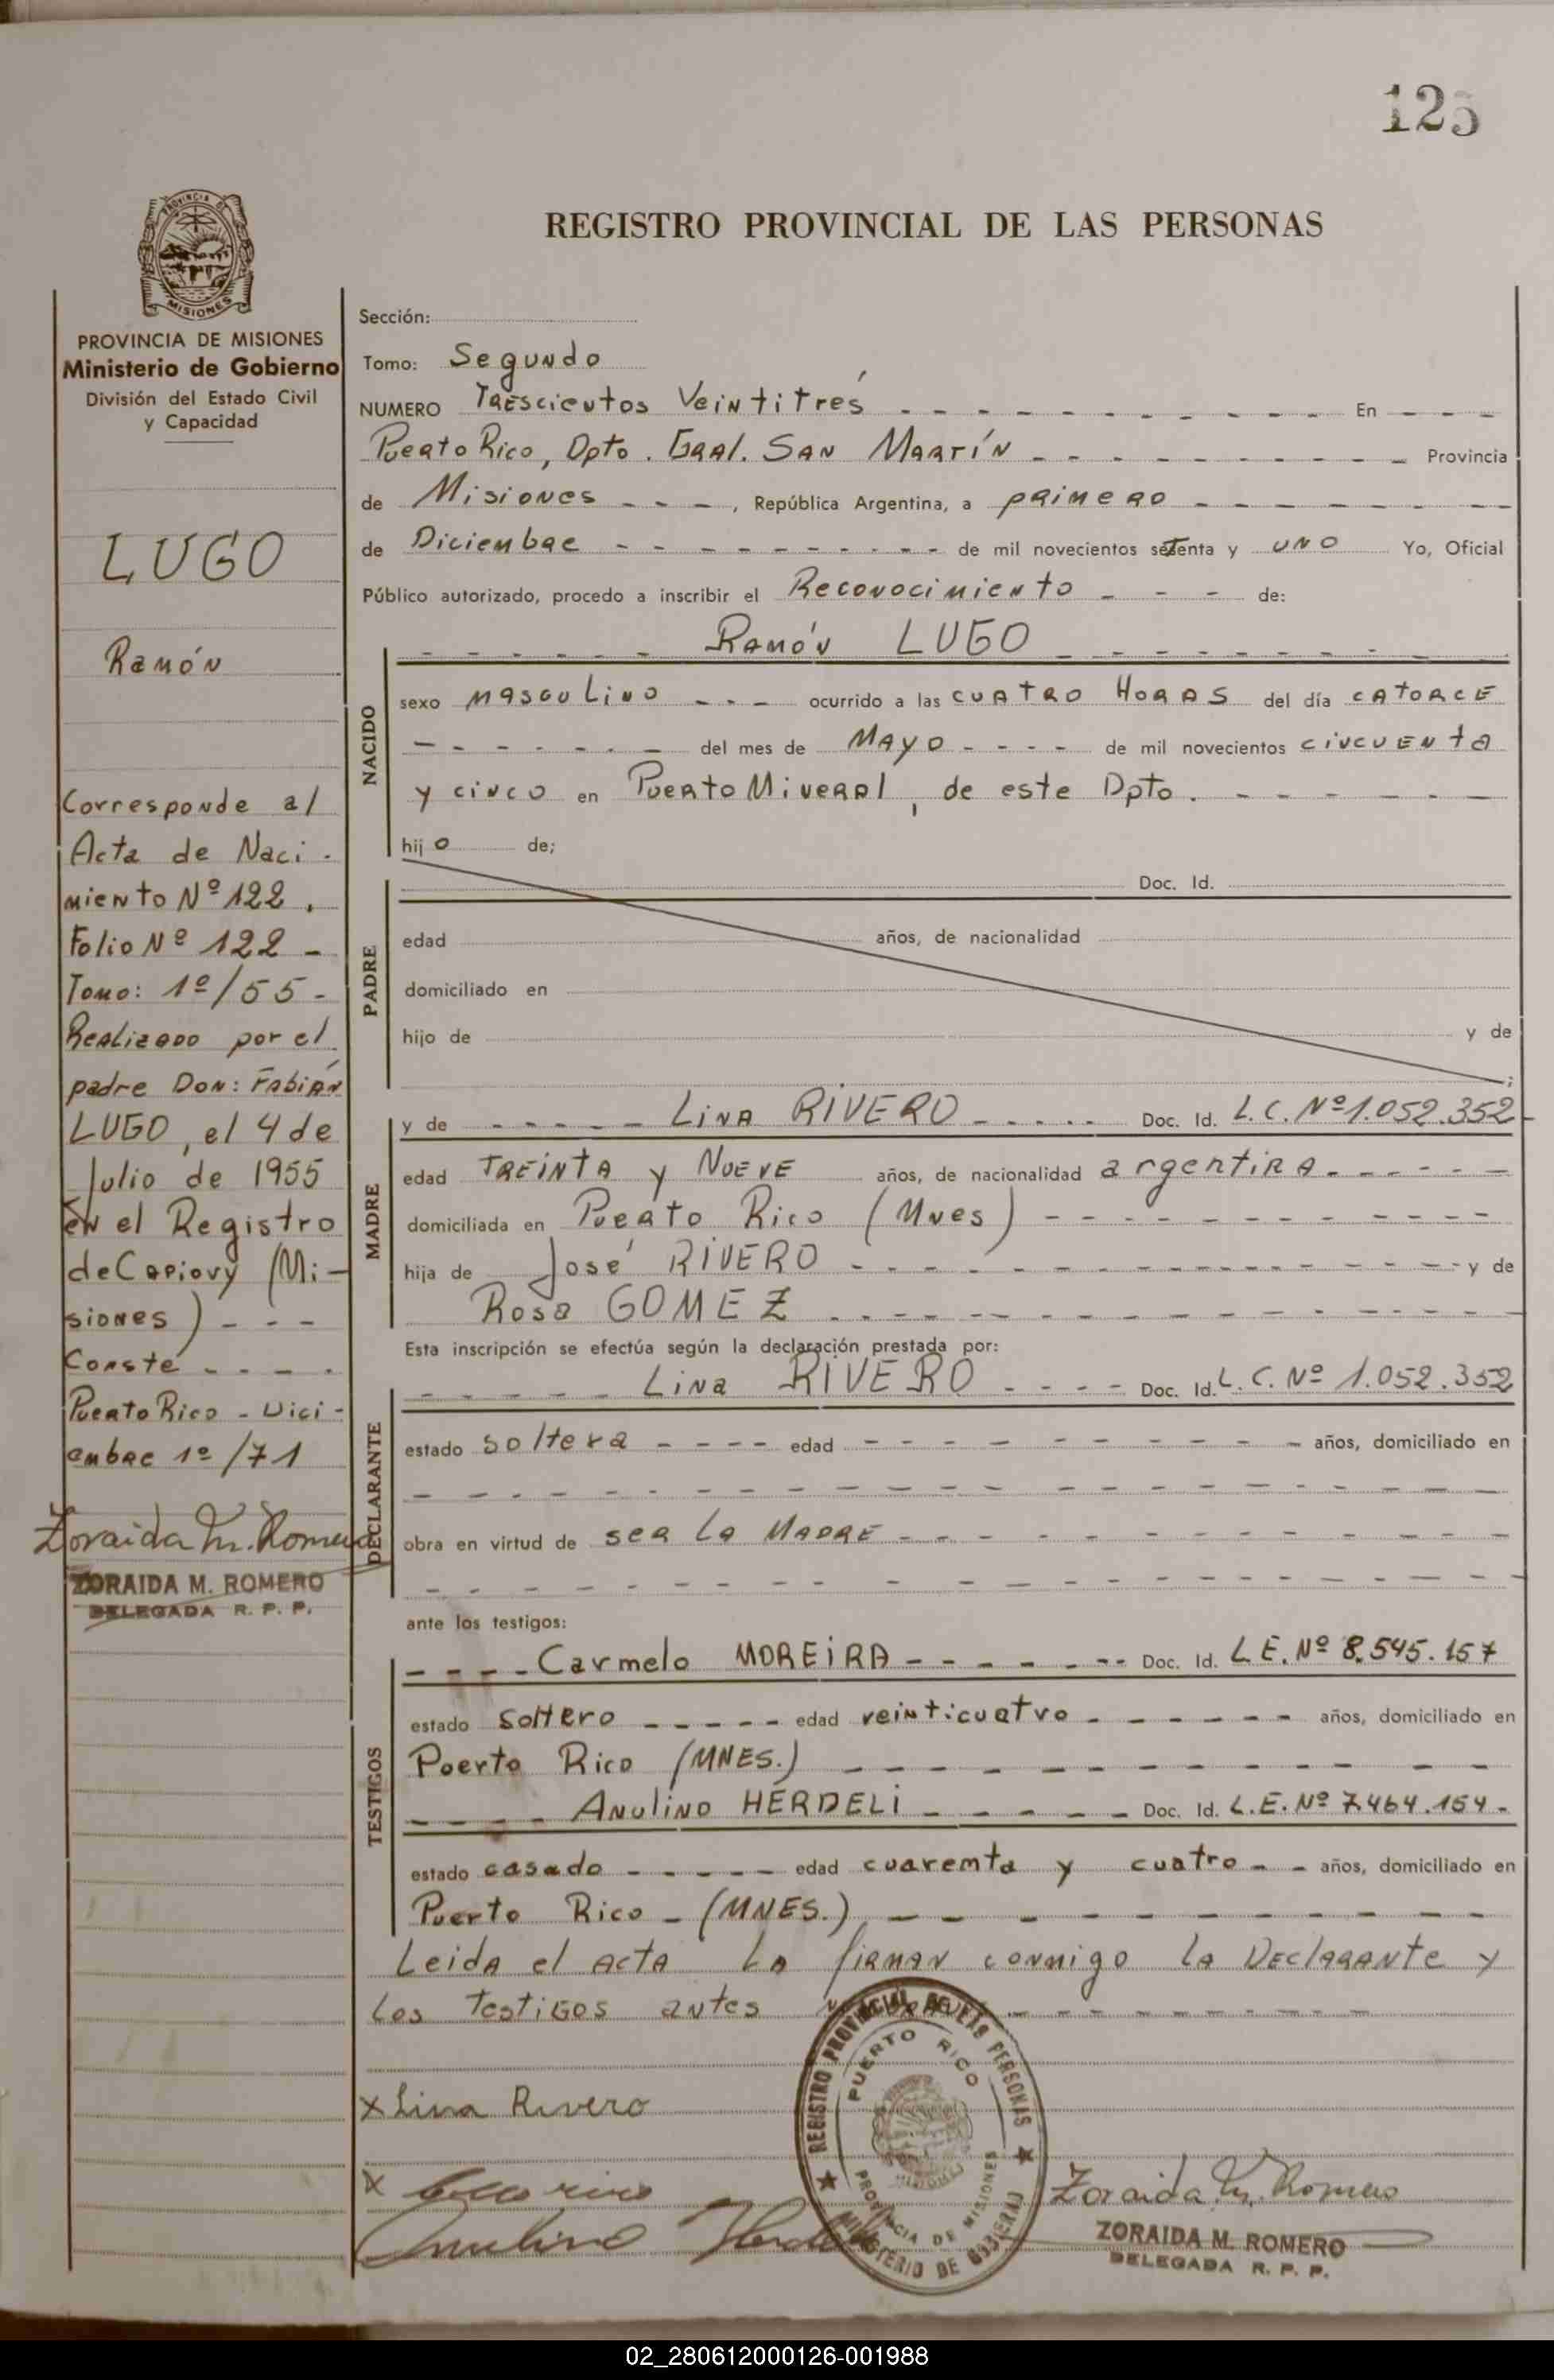 125
REGISTRO PROVINCIAL DE LAS PERSONAS
PROVINCIA DE MISIONES
Ministerio de Gobierno
División del Estado Civil
y Capacidad
LUGO
Ramón
Corresponde al
Acta de Naci-
miento Nº 122,
Folio Nº 122 -
Tomo: 1º/55 -
Realizado por el
padre Don: Fabián
LUGO, el 4 de
Julio de 1955
en el Registro
de Capiovy (Mi-
siones) - - -
Conste - - - -
Puerto Rico - Dici-
embre 1º/71
Zoraida M. Romero
ZORAIDA M. ROMERO
DELEGADA R. P. P.
Sección:
Tomo: Segundo
NUMERO Trescientos Veintitrés - - - En - - -
Puerto Rico, Dpto. Gral. San Martín - - - Provincia
de Misiones - - -, República Argentina, a primero - - -
de Diciembre - - - de mil novecientos setenta y uno Yo, Oficial
Público autorizado, procedo a inscribir el Reconocimiento - - - de:
- - - Ramón LUGO - - -
NACIDO
sexo masculino - - - ocurrido a las cuatro Horas del día catorce
- - - del mes de Mayo - - - de mil novecientos cincuenta
y cinco en Puerto Mineral, de este Dpto. - - -
hijo de;
PADRE
Doc. Id.
edad años, de nacionalidad
domiciliado en
hijo de y de
;
MADRE
y de - - - Lina RIVERO - - - Doc. Id. L.C. Nº 1.052.352 -
edad Treinta y Nueve años, de nacionalidad argentina - - -
domiciliada en Puerto Rico (Mnes) - - -
hija de José RIVERO - - - y de
Rosa GOMEZ - - -
Esta inscripción se efectúa según la declaración prestada por:
DECLARANTE
- - - Lina RIVERO - - - Doc. Id. L.C. Nº 1.052.352
estado soltera - - - edad - - - años, domiciliado en
- - -
obra en virtud de ser la Madre - - -
- - -
ante los testigos:
TESTIGOS
- - - Carmelo MOREIRA - - - Doc. Id. L.E. Nº 8.545.157
estado soltero - - - edad veinticuatro - - - años, domiciliado en
Puerto Rico (MNES.) - - -
- - - Anulino HERDELI - - - Doc. Id. L.E. Nº 7.464.154 -
estado casado - - - edad cuarenta y cuatro - - años, domiciliado en
Puerto Rico - (MNES.) - - -
Leida el acta la firman conmigo la Declarante y
los Testigos antes - - -
REGISTRO PROVINCIAL DE LAS PERSONAS
PUERTO RICO
PROVINCIA DE MISIONES
MINISTERIO DE GOBIERNO
x Lina Rivero
x
Anulino
Zoraida M. Romero
ZORAIDA M. ROMERO
DELEGADA R. P. P.
02_280612000126-001988